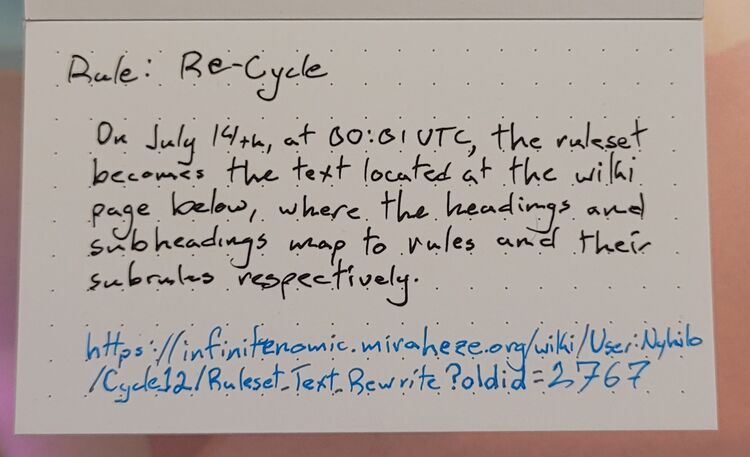 Rule: Re-Cycle
On July 14th, at 00:01 UTC, the ruleset
becomes the text located at the wiki
page below, where the headings and
subheadings map to rules and their
subrules respectively.
https://infinitenomic.miraheze.org/wiki/User:Nyhilo
/Cycle12/Ruleset_Text_Rewrite?oldid=2767